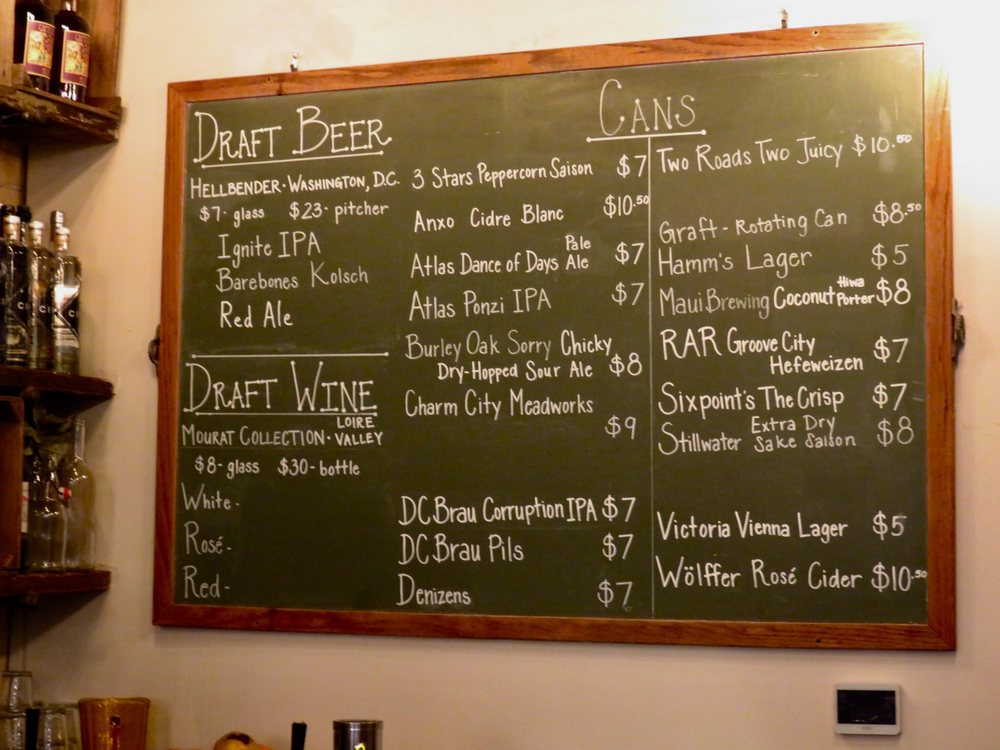 DRAFT BEER
HELLBENDER · WASHINGTON, D.C.
$7- glass $23- pitcher
Ignite IPA
Barebones Kolsch
Red Ale
DRAFT WINE
MOURAT COLLECTION · LOIRE VALLEY
$8- glass $30- bottle
White -
Rosé -
Red -
CANS
3 Stars Peppercorn Saison $7
Anxo Cidre Blanc $10.50
Atlas Dance of Days Pale Ale $7
Atlas Ponzi IPA $7
Burley Oak Sorry Chicky
Dry-Hopped Sour Ale $8
Charm City Meadworks
$9
DC Brau Corruption IPA $7
DC Brau Pils $7
Denizens $7
Two Roads Two Juicy $10.50
Graft - Rotating Can $8.50
Hamm's Lager $5
Maui Brewing Coconut Hiwa Porter $8
RAR Groove City
Hefeweizen $7
Sixpoint's The Crisp $7
Stillwater Extra Dry Sake Saison $8
Victoria Vienna Lager $5
Wölffer Rosé Cider $10.50